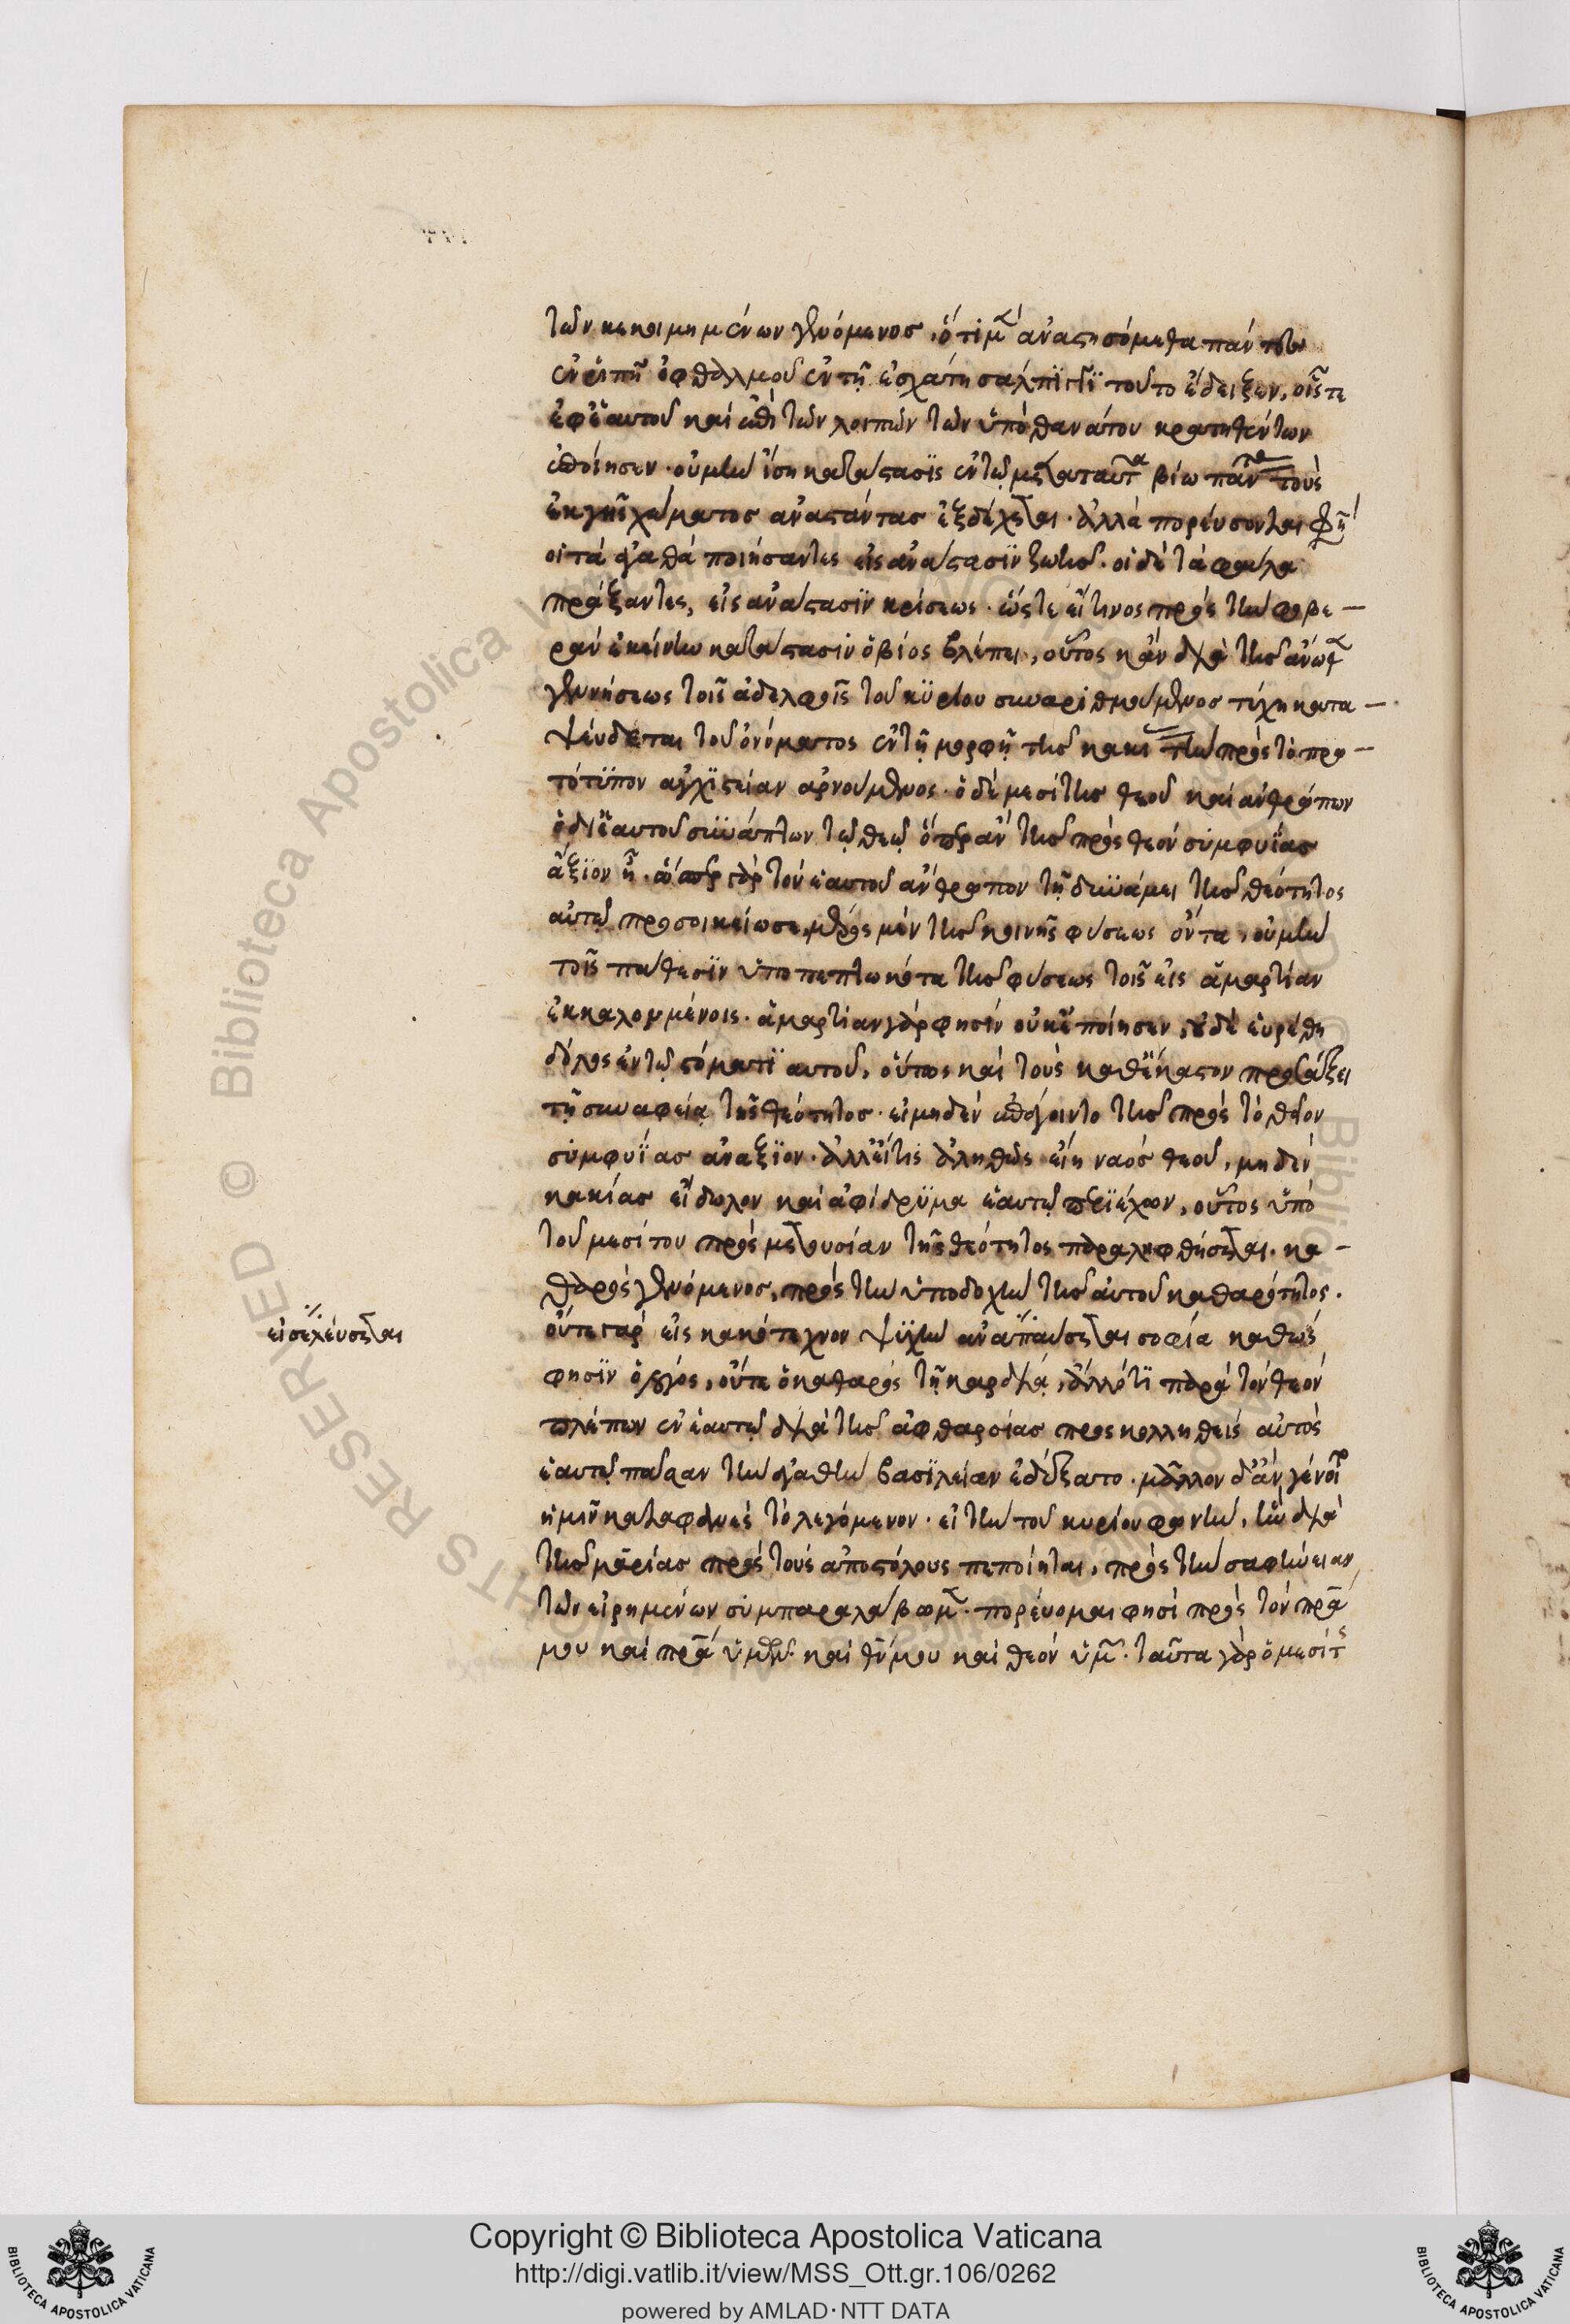 τῶν κεκοιμημένων γενόμενος, ὅτι μὲν ἀναστησόμεθα πάντες
ἐν ῥιπῇ ὀφθαλμοῦ ἐν τῇ ἐσχάτῃ σάλπιγγι τοῦτο ἔδειξεν, οἷς τε
ἐφ' ἑαυτοῦ καὶ ἐπὶ τῶν λοιπῶν τῶν ὑπὸ θανάτου κρατηθέντων
ἐποίησεν. οὐ μὴν ἴση κατάστασις ἐν τῷ μετὰ ταῦτα βίω πάντας τοὺς
ἐκ γῆς χώματος ἀναστάντας ἐξδέχεται. ἀλλὰ πορεύσονται φησὶ
οἱ τὰ ἀγαθὰ ποιήσαντες εἰς ἀνάστασιν ζωῆς. οἱ δὲ τὰ φαῦλα
πράξαντες, εἰς ἀνάστασιν κρίσεως. ὥστε εἴ τινος πρὸς τὴν φοβε-
ρὰν ἐκείνην κατάστασιν ὁ βίος βλέπει, οὗτος κἂν διὰ τῆς ἄνωθεν
γεννήσεως τοῖς ἀδελφοῖς τοῦ κυρίου συναριθμούμενος τύχη κατα-
ψεύδεται τοῦ ὀνόματος ἐν τῇ μορφῇ τῆς κακίας τὴν πρὸς τὸ πρω-
τότυπον ἀγχιστείαν ἀρνούμενος. ὁ δὲ μεσίτης θεοῦ καὶ ἀνθρώπων
ὁ δι' ἑαυτοῦ συνάπτων τῷ θεῷ ὅπερ ἂν τῆς πρὸς θεὸν συμφυΐας
ἄξιον ᾖ. ὥσπερ γὰρ τὸν ἑαυτοῦ ἄνθρωπον τῇ δυνάμει τῆς θεότητος
αὐτῷ προσοικείωσε, μέρος μὲν τῆς κοινῆς φύσεως ὄντα, οὐ μὴν
τοῖς πάθεσιν ὑποπεπτωκότα τῆς φύσεως τοῖς εἰς ἁμαρτίαν
ἐκκαλουμένοις. ἁμαρτίαν γάρ φησιν οὐκ ἐποίησεν, οὐδὲ εὑρέθη
δόλος ἐν τῷ στόματι αὐτοῦ, οὕτως καὶ τοὺς καθ' ἕκαστον προσάξει
τῇ συναφείᾳ τῆς θεότητος. εἰ μηδὲν ἐπάγοιντο τῆς πρὸς τὸ θεῖον
συμφυΐας ἀνάξιον. ἀλλ' εἴ τις ἀληθῶς εἴη ναὸς θεοῦ, μηδὲν
κακίας εἴδωλον καὶ ἀφίδρυμα ἑαυτῷ περιέχων, οὗτος ὑπὸ
τοῦ μεσίτου πρὸς μετουσίαν τῆς θεότητος παραληφθήσεται. κα-
θαρὸς γενόμενος, πρὸς τὴν ὑποδοχὴν τῆς αὐτοῦ καθαρότητος.
οὔτε γὰρ εἰς κακότεχνον ψυχὴν ἀναπαύσεται σοφία καθώς
φησιν ὁ λόγος, οὔτε ὁ καθαρὸς τῇ καρδίᾳ, ἄλλό τι παρὰ τὸν θεὸν
βλέπων ἐν ἑαυτῷ διὰ τῆς ἀφθαρσίας προσκολληθεὶς αὐτὸς
ἑαυτῷ πᾶσαν τὴν ἀγαθὴν βασιλείαν ἐδέξατο. μᾶλλον δ' ἂν γένοιτο
ἡμῖν καταφανὲς τὸ λεγόμενον. εἰ τὴν τοῦ κυρίου φωνὴν, ἣν διὰ
τῆς μαρίας πρὸς τοὺς ἀποστόλους πεποίηται, πρὸς τὴν σαφήνειαν
τῶν εἰρημένων συμπαραλάβωμεν. πορεύομαι φησὶ πρὸς τὸν πρα
μου καὶ πρα ὑμῶν. καὶ θν μου καὶ θεὸν ὑμῶν. ταῦτα γὰρ ὁ μεσίτης
εἰσελεύσεται